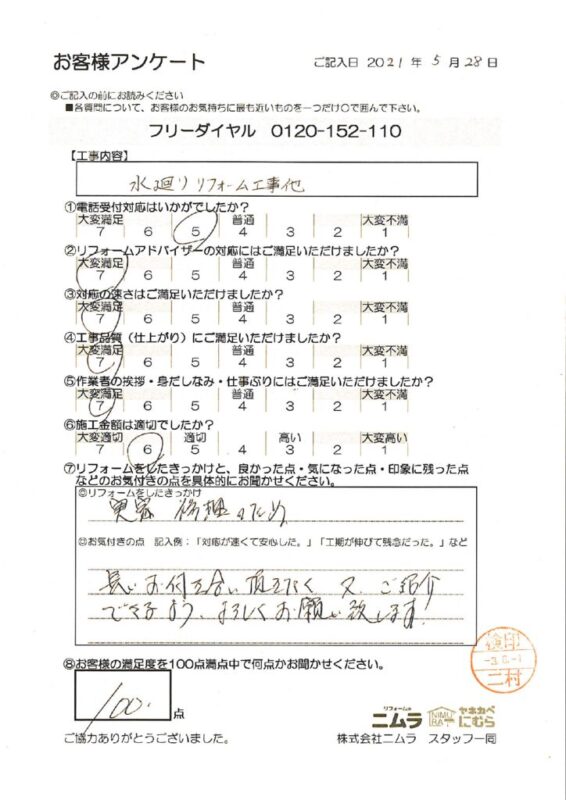 お客様アンケート
ご記入日 2021 年 5 月 28 日
◎ご記入の前にお読みください
■各質問について、お客様のお気持ちに最も近いものを一つだけ○で囲んで下さい。
フリーダイヤル 0120-152-110
【工事内容】
水廻りリフォーム工事他
①電話受付対応はいかがでしたか?
大変満足 普通 大変不満
7 6 5 4 3 2 1
②リフォームアドバイザーの対応にはご満足いただけましたか?
大変満足 普通 大変不満
7 6 5 4 3 2 1
③対応の速さはご満足いただけましたか?
大変満足 普通 大変不満
7 6 5 4 3 2 1
④工事品質(仕上がり)にご満足いただけましたか?
大変満足 普通 大変不満
7 6 5 4 3 2 1
⑤作業者の挨拶・身だしなみ・仕事ぶりにはご満足いただけましたか?
大変満足 普通 大変不満
7 6 5 4 3 2 1
⑥施工金額は適切でしたか?
大変適切 適切 高い 大変高い
7 6 5 4 3 2 1
⑦リフォームをしたきっかけと、良かった点・気になった点・印象に残った点
などのお気付きの点を具体的にお聞かせください。
◎リフォームをしたきっかけ
実家 修理のため
◎お気付きの点 記入例:「対応が速くて安心した。」「工期が伸びて残念だった。」など
長いお付き合い頂きたく 又、ご紹介
できるよう、よろしくお願い致します!
検印
-3.6.-1
二村
⑧お客様の満足度を100点満点中で何点かお聞かせください。
100. 点
リフォームの
ニムラ
NIMU
RA
ヤネカベ
にむら
ご協力ありがとうございました。
株式会社ニムラ スタッフ一同